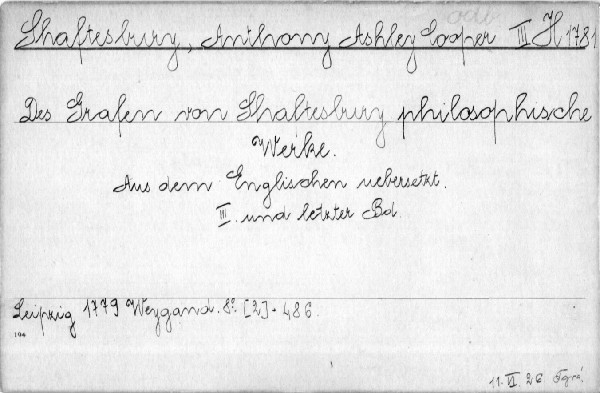 Shaftesbury, Anthony Ashley Cooper III H 1781
Des Grafen von Shaftesbury philosophische
Werke.
Aus dem Englischen uebersetzt.
III. und letzter Bd.
Leipzig 1779 Weygand. 8º. [2] + 486.
11. VI. 26